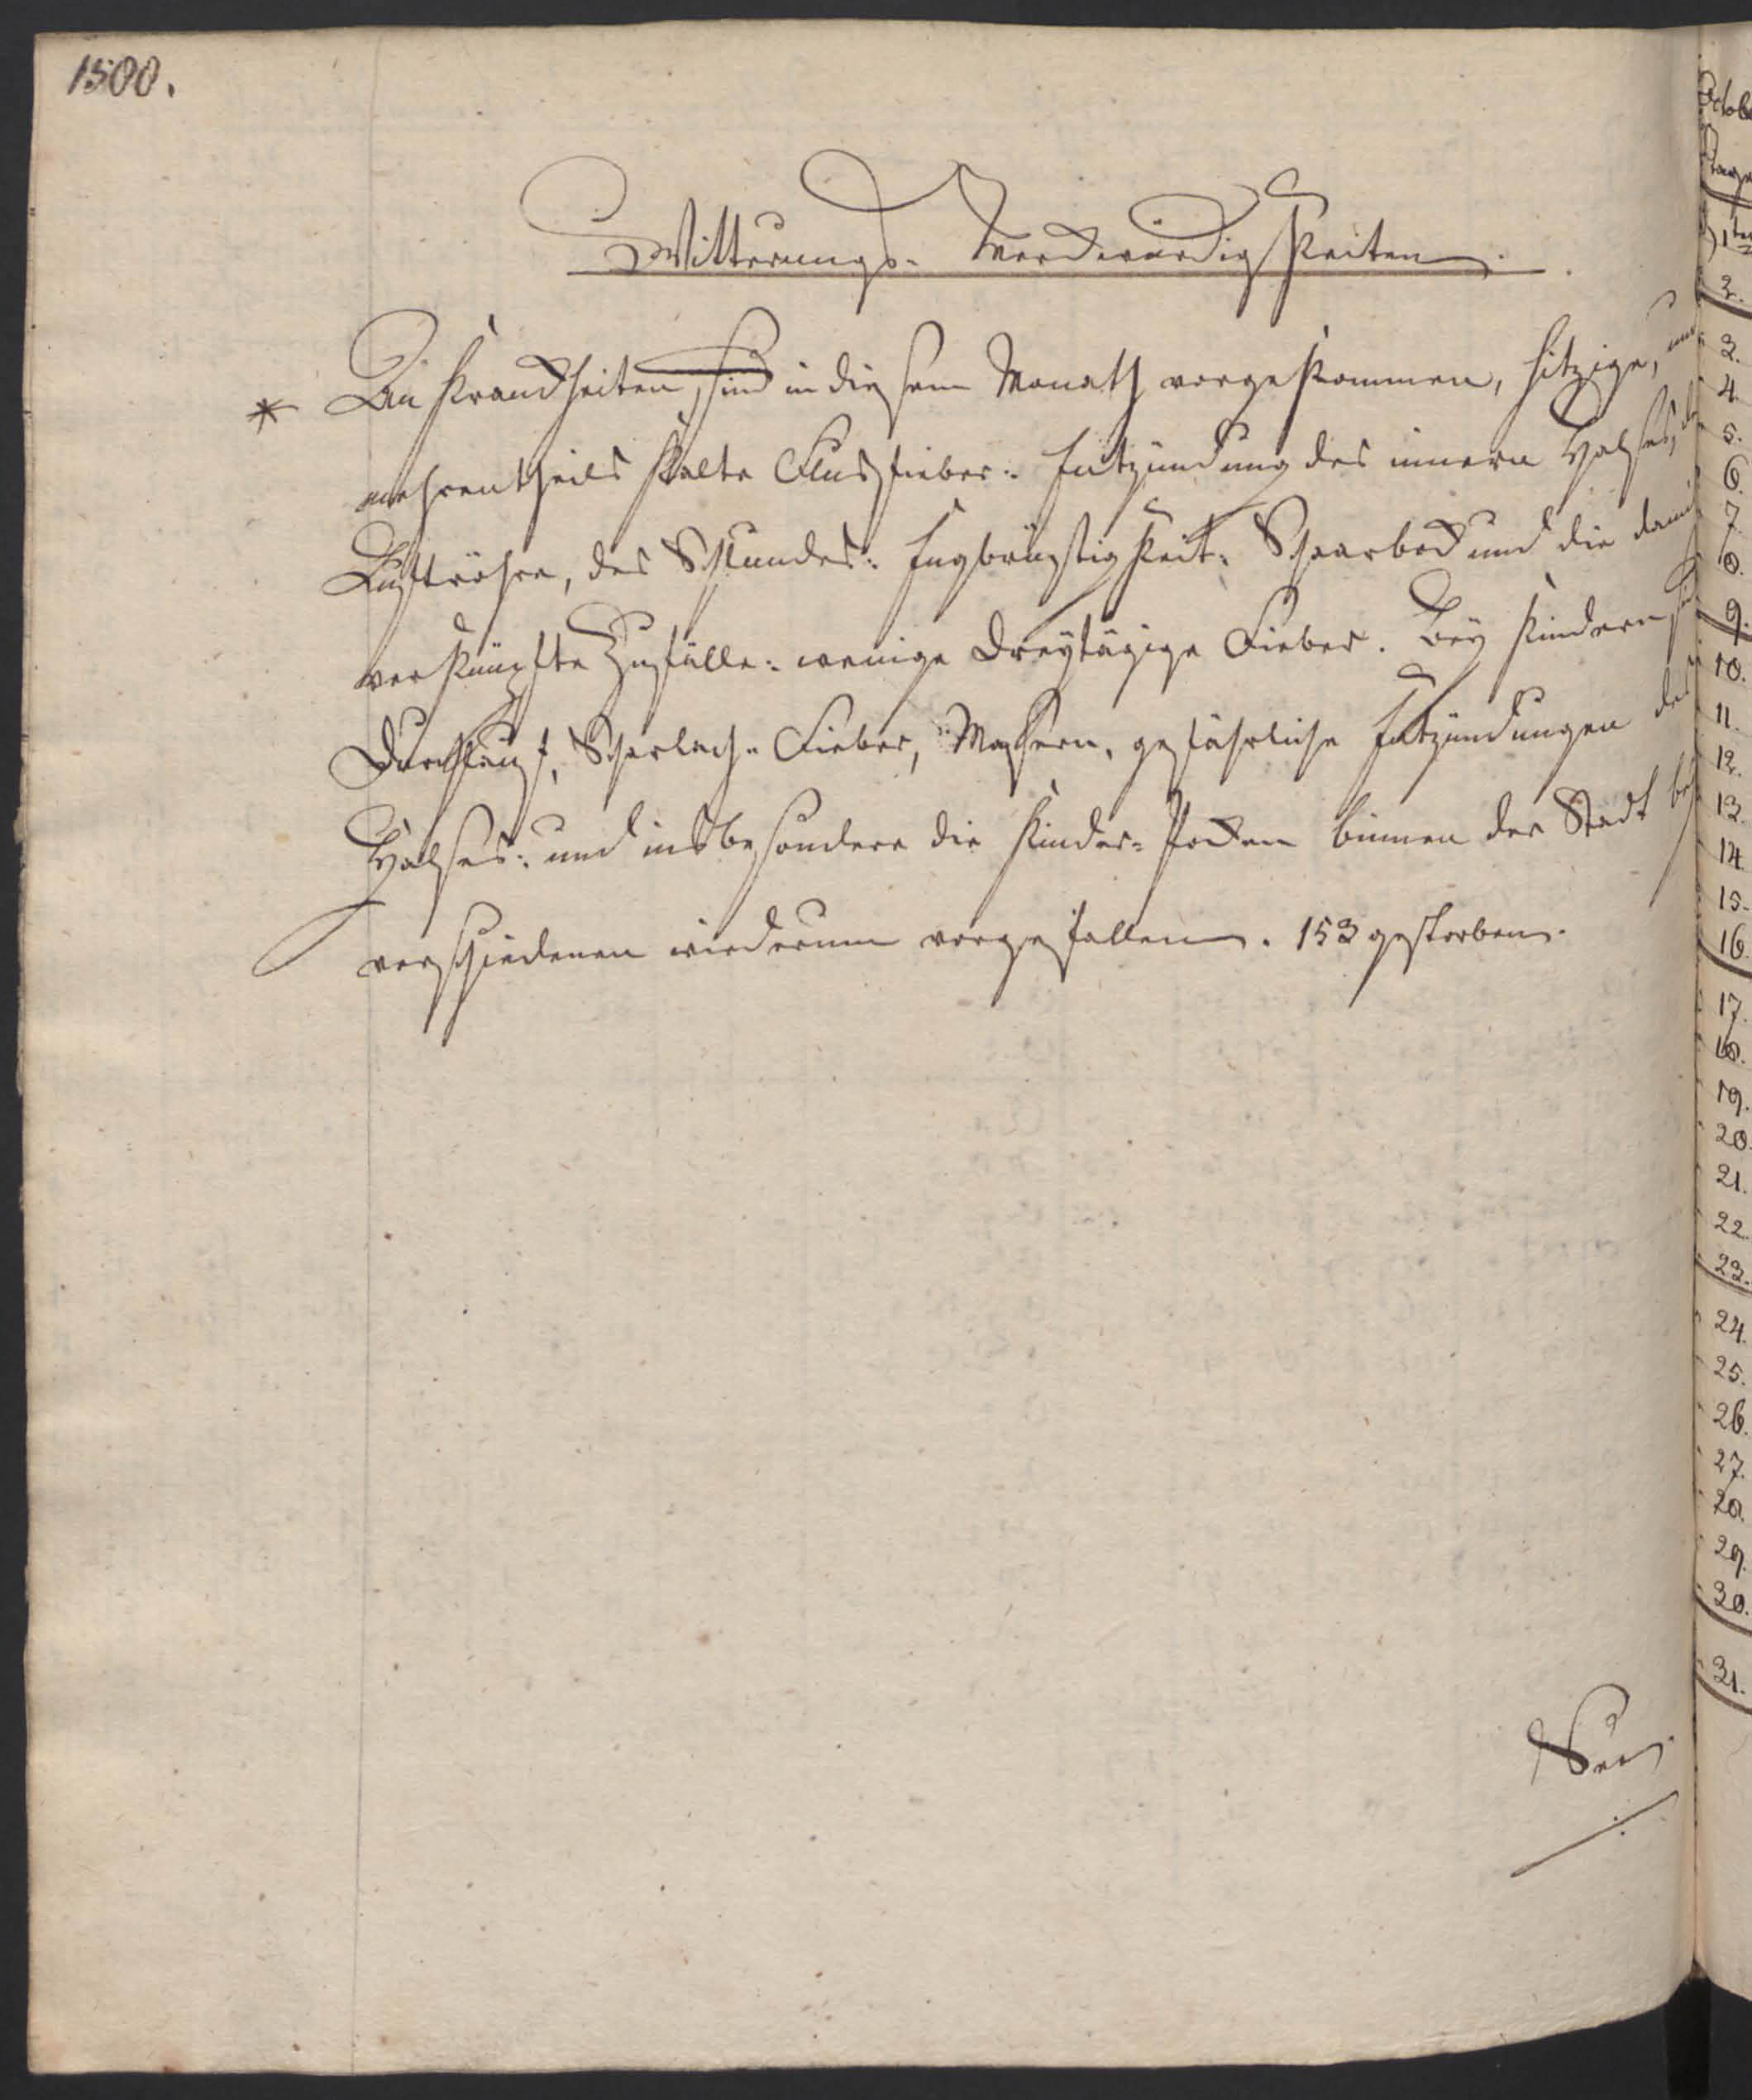 1500.
Witterungs- Merckwürdigkeiten.
* An Kranckheiten, sind in diesem Monath vorgekommen, hitzige, und
mehrentheils kalte Flussfieber: Entzündung des innern Halses, der
Luftröhre, des Schlundes: Engbrüstigkeit: Scharbock und die damit
verknüpfte Zufälle: wenige dreytägige Fieber. Bey Kindern sind
Durchlauf, Scharlach-Fieber, Masern, gefährliche Entzündungen des
Halses: und insbesondere die Kinder-Pocken binnen der Stadt bey
verschiedenen wiederum vorgefallen. 153 gestorben.
Octob
Tage
1ten
2.
3.
4.
5.
6.
7.
8.
9.
10.
11.
12.
13.
14.
15.
16.
17.
18.
19.
20.
21.
22.
23.
24.
25.
26.
27.
28.
29.
30.
31.